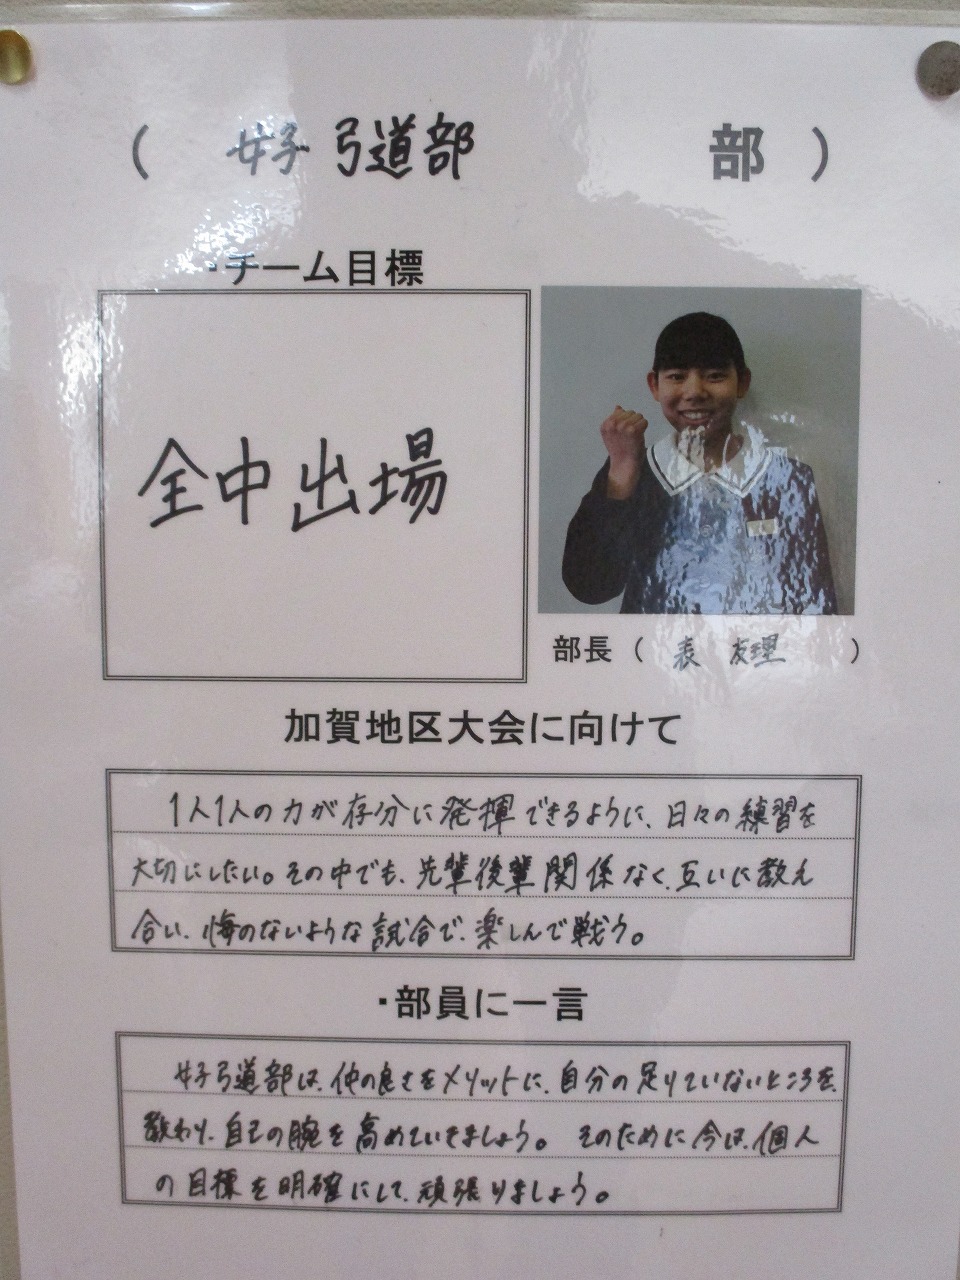 ( 女子 弓道部 部 )
・チーム目標
全中出場
部長 ( 表 友理 )
加賀地区大会に向けて
1人1人の力が存分に発揮できるように、日々の練習を
大切にしたい。その中でも、先輩後輩関係なく、互いに教え
合い、悔のないような試合で、楽しんで戦う。
・部員に一言
女子弓道部は、仲の良さをメリットに、自分の足りていないところを、
教わり、自己の腕を高めていきましょう。そのために今は、個人
の目標を明確にして、頑張りましょう。